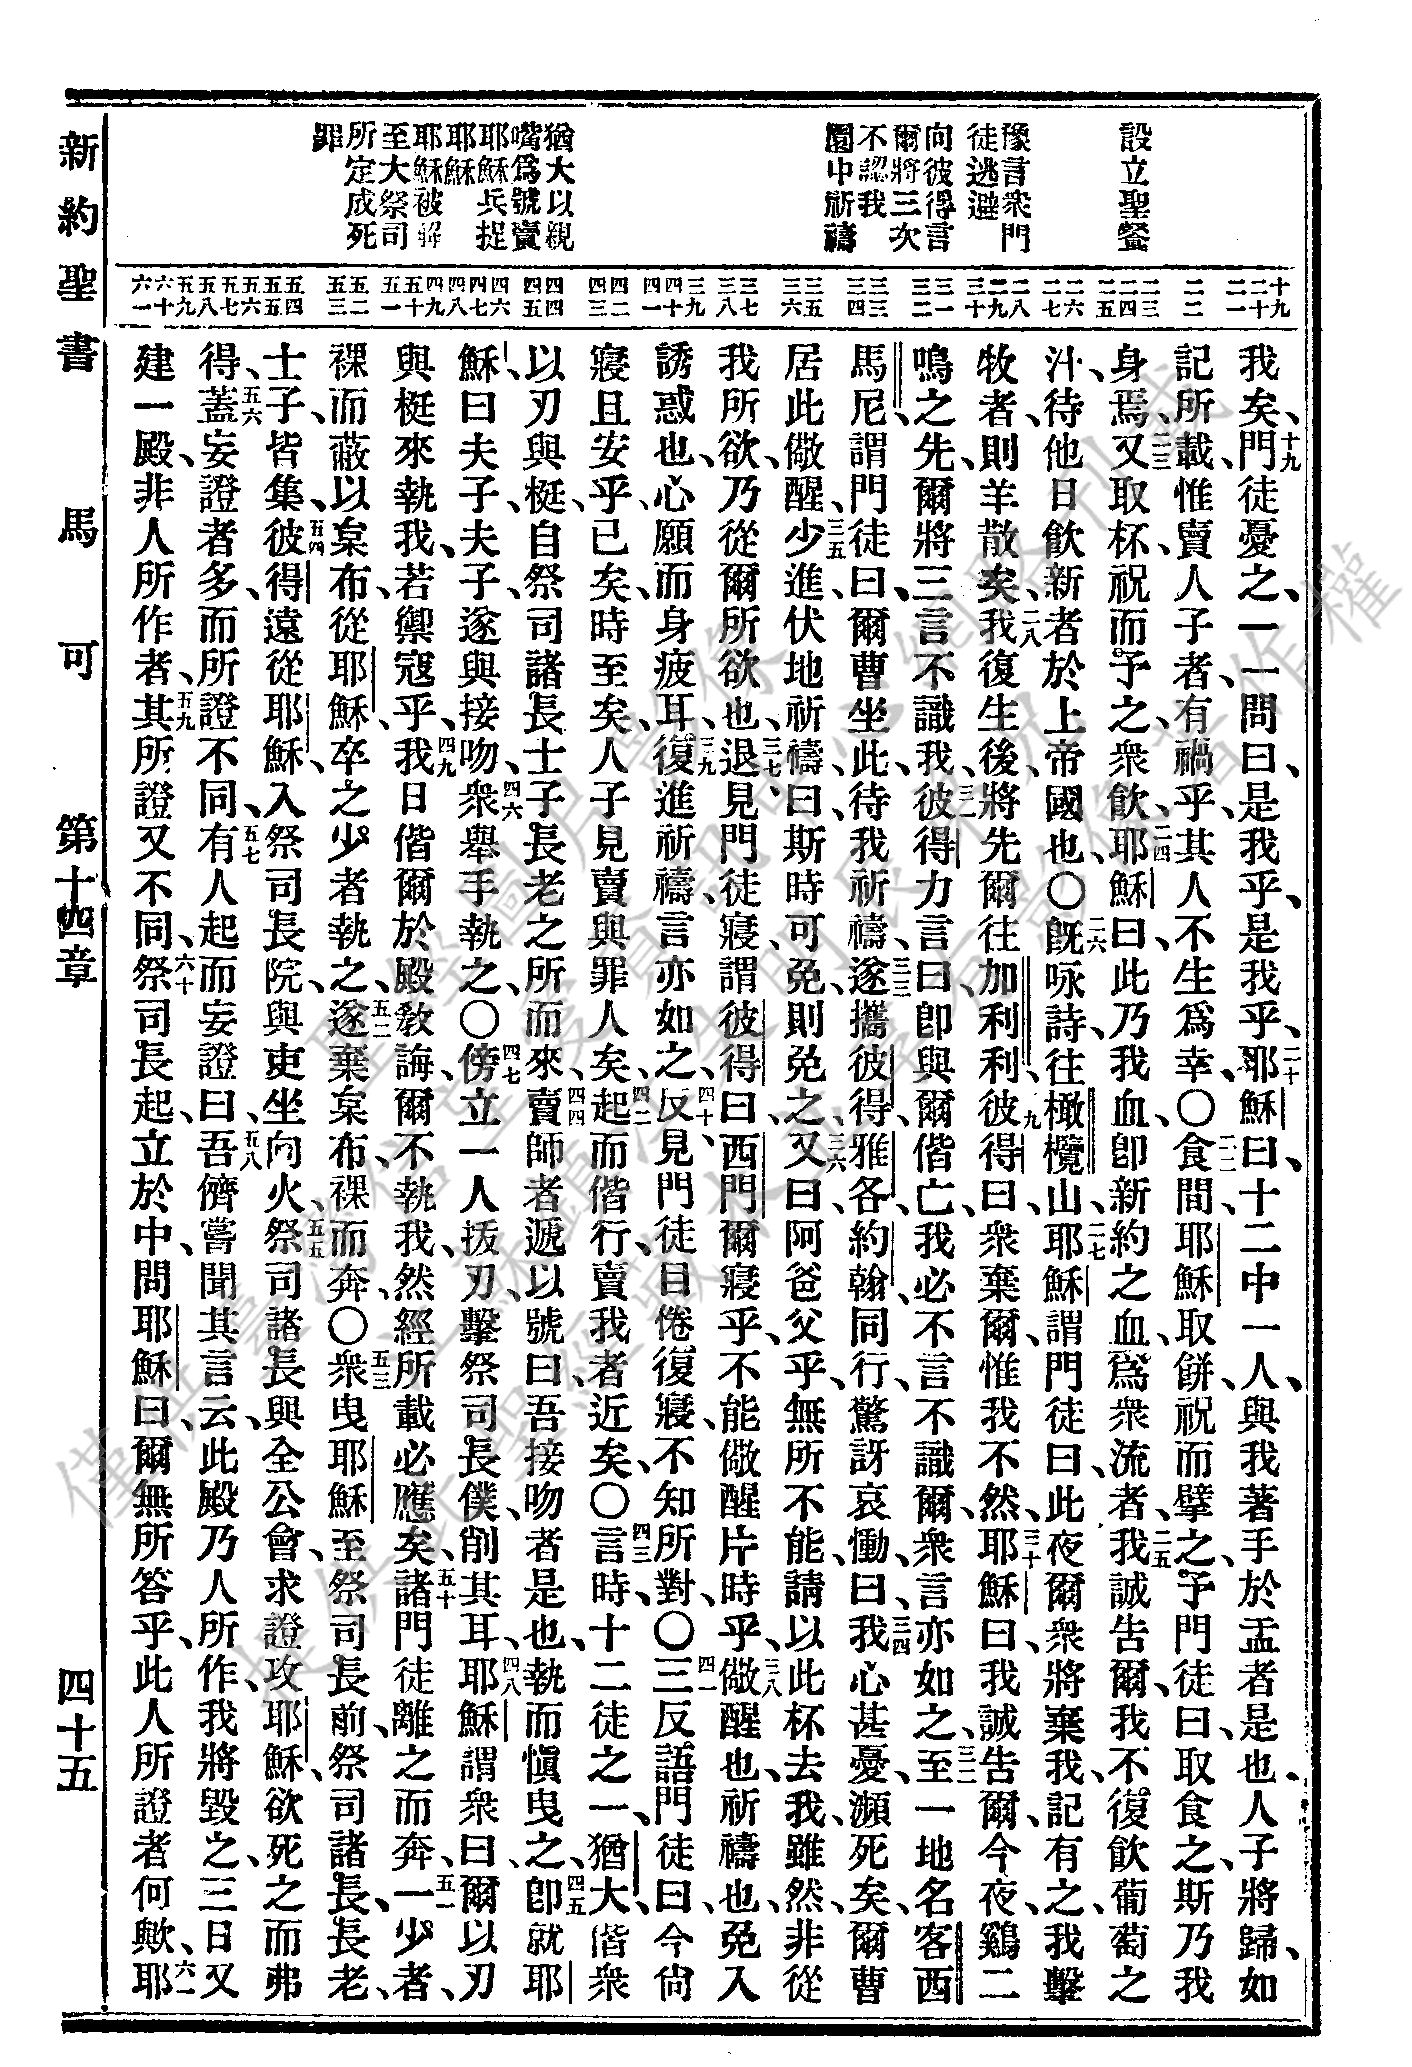 設立聖餐
豫言衆門
徒逃避
向彼得言
爾將三次
不認我
園中祈禱
猶大以親
嘴爲號賣
耶穌兵捉
耶穌
耶穌被解
至大祭司
所定成死
罪
十九 二十 二一 二二 二三 二四 二五 二六 二七 二八 二九 三十 三一 三二 三三 三四 三五 三六 三七 三八 三九 四十 四一 四二 四三 四四 四五 四六 四七 四八 四九 五十 五一 五二 五三 五四 五五 五六 五七 五八 五九 六十 六一
我矣、十九門徒憂之、一一問曰、是我乎、是我乎、二十耶穌曰、十二中一人、與我著手於盂者是也、二一人子將歸、如
記所載、惟賣人子者、有禍乎其人、不生爲幸、〇二二食間、耶穌取餅、祝而擘之、予門徒曰、取食之、斯乃我
身焉、二三又取杯、祝而予之、衆飲、二四耶穌曰、此乃我血、卽新約之血、爲衆流者、二五我誠告爾、我不復飲葡萄之
汁、待他日飲新者於上帝國也、〇二六旣咏詩、往橄欖山、二七耶穌謂門徒曰、此夜爾衆將棄我、記有之、我擊
牧者、則羊散矣、二八我復生後、將先爾往加利利、二九彼得曰、衆棄爾、惟我不然、三十耶穌曰、我誠告爾、今夜、鷄二
鳴之先、爾將三言不識我、三一彼得力言曰、卽與爾偕亡、我必不言不識爾、衆言亦如之、三二至一地、名客西
馬尼、謂門徒曰、爾曹坐此、待我祈禱、三三遂攜彼得、雅各、約翰同行、驚訝哀慟、三四曰、我心甚憂、瀕死矣、爾曹
居此儆醒、三五少進、伏地祈禱、曰、斯時可免、則免之、三六又曰、阿爸父乎、無所不能、請以此杯去我、雖然、非從
我所欲、乃從爾所欲也、三七退、見門徒寢、謂彼得曰、西門、爾寢乎、不能儆醒片時乎、三八儆醒也、祈禱也、免入
誘惑也、心願而身疲耳、三九復進祈禱、言亦如之、四十反、見門徒目倦復寢、不知所對、〇四一三反、語門徒曰、今尙
寢且安乎、已矣、時至矣、人子見賣與罪人矣、四二起而偕行、賣我者近矣、〇四三言時、十二徒之一、猶大、偕衆
以刃與梃、自祭司諸長士子長老之所而來、四四賣師者遞以號曰、吾接吻者是也、執而愼曳之、四五卽就耶
穌、曰、夫子、夫子、遂與接吻、四六衆舉手執之、〇四七傍立一人、拔刃、擊祭司長僕、削其耳、四八耶穌謂衆曰、爾以刃
與梃來執我、若禦寇乎、四九我日偕爾於殿教誨、爾不執我、然經所載必應矣、五十諸門徒離之而奔、五一一少者、
裸而蔽以枲布、從耶穌、卒之少者執之、五二遂棄枲布、裸而奔、〇五三衆曳耶穌、至祭司長前、祭司諸長、長老、
士子、皆集、五四彼得遠從耶穌、入祭司長院、與吏坐向火、五五祭司諸長與全公會、求證攻耶穌、欲死之而弗
得、五六蓋妄證者多、而所證不同、五七有人起而妄證曰、五八吾儕嘗聞其言云、此殿乃人所作、我將毀之、三日又
建一殿、非人所作者、五九其所證又不同、六十祭司長起、立於中、問耶穌曰、爾無所答乎、此人所證者何歟、六一耶
新約聖書 馬可 第十四章 四十五